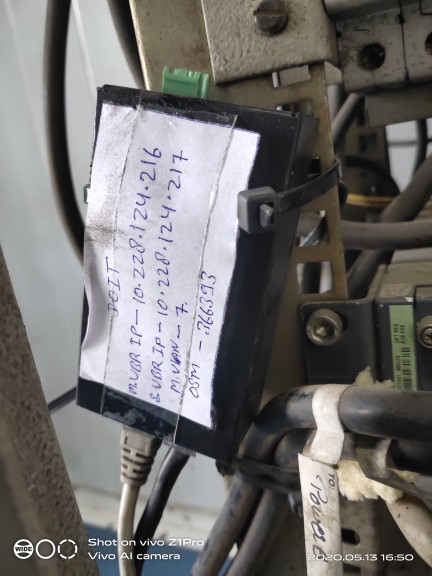 DOIT
M.UBR IP - 10.228.124.216
S.UBR IP - 10.228.124.217
M.VLAN - 7.
OSM - 366393
TO.
Shot on vivo Z1Pro
Vivo AI camera
2020.05.13 16:50